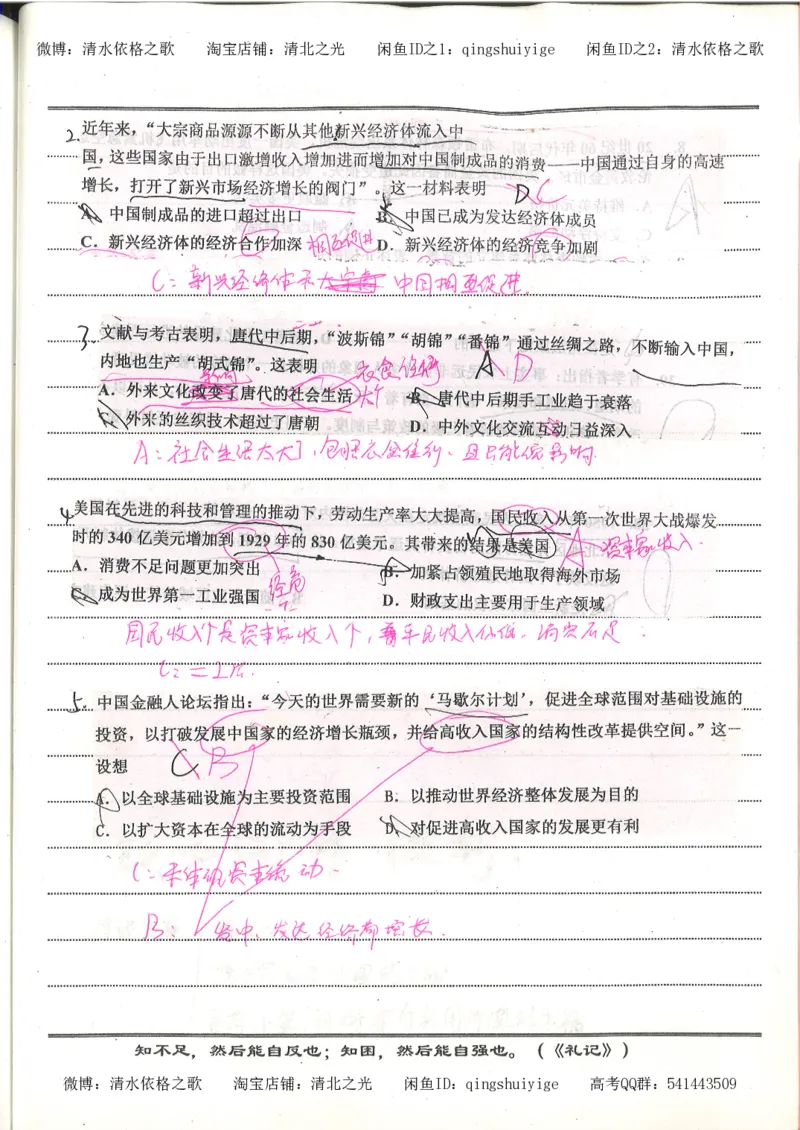 微博：清水依格之歌 淘宝店铺：清北之光 闲鱼ID之1：qingshuiyige 闲鱼ID之2：清水依格之歌
2. 近年来，“大宗商品源源不断从其他新兴经济体流入中
国，这些国家由于出口激增收入增加进而增加对中国制成品的消费——中国通过自身的高速
增长，打开了新兴市场经济增长的阀门”。这一材料表明 D C
A．中国制成品的进口超过出口 B．中国已成为发达经济体成员
C．新兴经济体的经济合作加深 相互促进 D．新兴经济体的经济竞争加剧
C：新兴经济体和 中国相互促进
3. 文献与考古表明，唐代中后期，“波斯锦”“胡锦”“番锦”通过丝绸之路，不断输入中国，
内地也生产“胡式锦”。这表明 衣食住行 A D
A．外来文化改变了唐代的社会生活 太大 B．唐代中后期手工业趋于衰落
C．外来的丝织技术超过了唐朝 D．中外文化交流互动日益深入
A：社会生活太大了，包照衣食住行、且只能像影响
4. 美国在先进的科技和管理的推动下，劳动生产率大大提高，国民收入从第一次世界大战爆发
时的 340 亿美元增加到 1929 年的 830 亿美元。其带来的结果是美国 A 资本家收入
A．消费不足问题更加突出 B．加紧占领殖民地取得海外市场
C．成为世界第一工业强国 经危 D．财政支出主要用于生产领域
国民收入个是资本家收入个，平民收入仍低，消费不足
C：二工后．
5. 中国金融人论坛指出：“今天的世界需要新的‘马歇尔计划’，促进全球范围对基础设施的
投资，以打破发展中国家的经济增长瓶颈，并给高收入国家的结构性改革提供空间。”这一
设想 C B
A．以全球基础设施为主要投资范围 B．以推动世界经济整体发展为目的
C．以扩大资本在全球的流动为手段 D．对促进高收入国家的发展更有利
C：未体现资本流动
B：发中、发达经济都增长
知不足，然后能自反也；知困，然后能自强也。（《礼记》）
微博：清水依格之歌 淘宝店铺：清北之光 闲鱼ID：qingshuiyige 高考QQ群：541443509